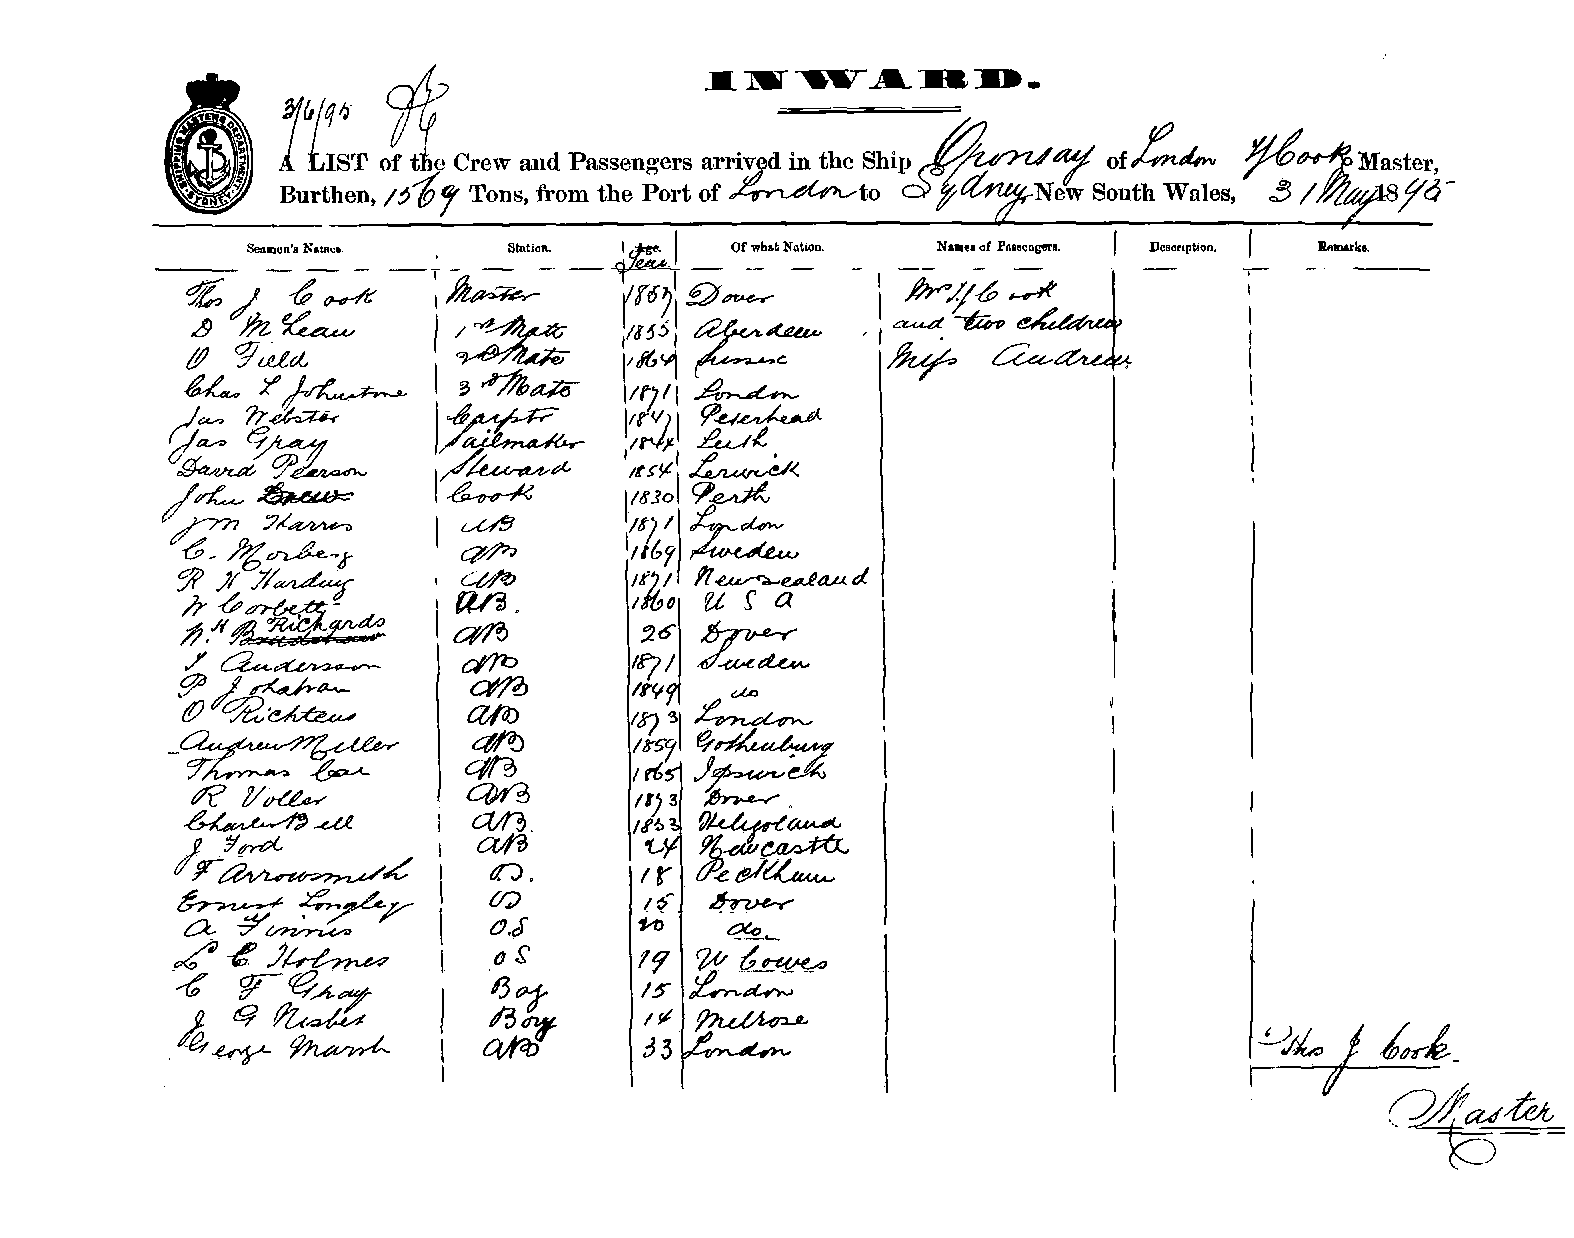 INWARD.
3/6/95
SHIPPING MASTERS DEPARTMENT SYDNEY
A LIST of the Crew and Passengers arrived in the Ship Oronsay of London TJ Cook Master,
Burthen, 1569 Tons, from the Port of London to Sydney New South Wales, 31 May 1895
Seamen's Names. Station. Age. Of what Nation. Names of Passengers. Description. Remarks.
Year
Thos J Cook Master 1857 Dover Mrs TJ Cook
D McLean 1st Mate 1855 Aberdeen and two children
O Field 2d Mate 1864 Sussex Miss Andrew
Chas L Johnstone 3rd Mate 1871 London
Jas Webster Carptr 1847 Peterhead
Jas Gray Sailmaker 1844 Leith
David Pearson Steward 1854 Lerwick
John Cook 1830 Perth
J M Harris AB 1871 London
C. Morberg AB 1869 Sweden
R H Harding AB 1871 New Zealand
W Corbett AB. 1860 U S A
W. H Richards AB 26 Dover
Anderson AB 1871 Sweden
P AB 1849 do
O Richtens AB 1873 London
Andrew Miller AB 1859 Gothenburg
Thomas Coe AB 1865 Ipswich
R Voller AB 1873 Dover
Charles Bell AB 1833 Heligoland
J Ford AB 24 Newcastle
F Arrowsmith O. 18 Peckham
Ernest Longley O 15 Dover
A Finnis O.S 20 do.
L C Holmes O S 19 W Cowes
C F Gray Boy 15 London
J G Nisbet Boy 14 Melrose
George Marsh AB 33 London
Thos J Cook.
Master